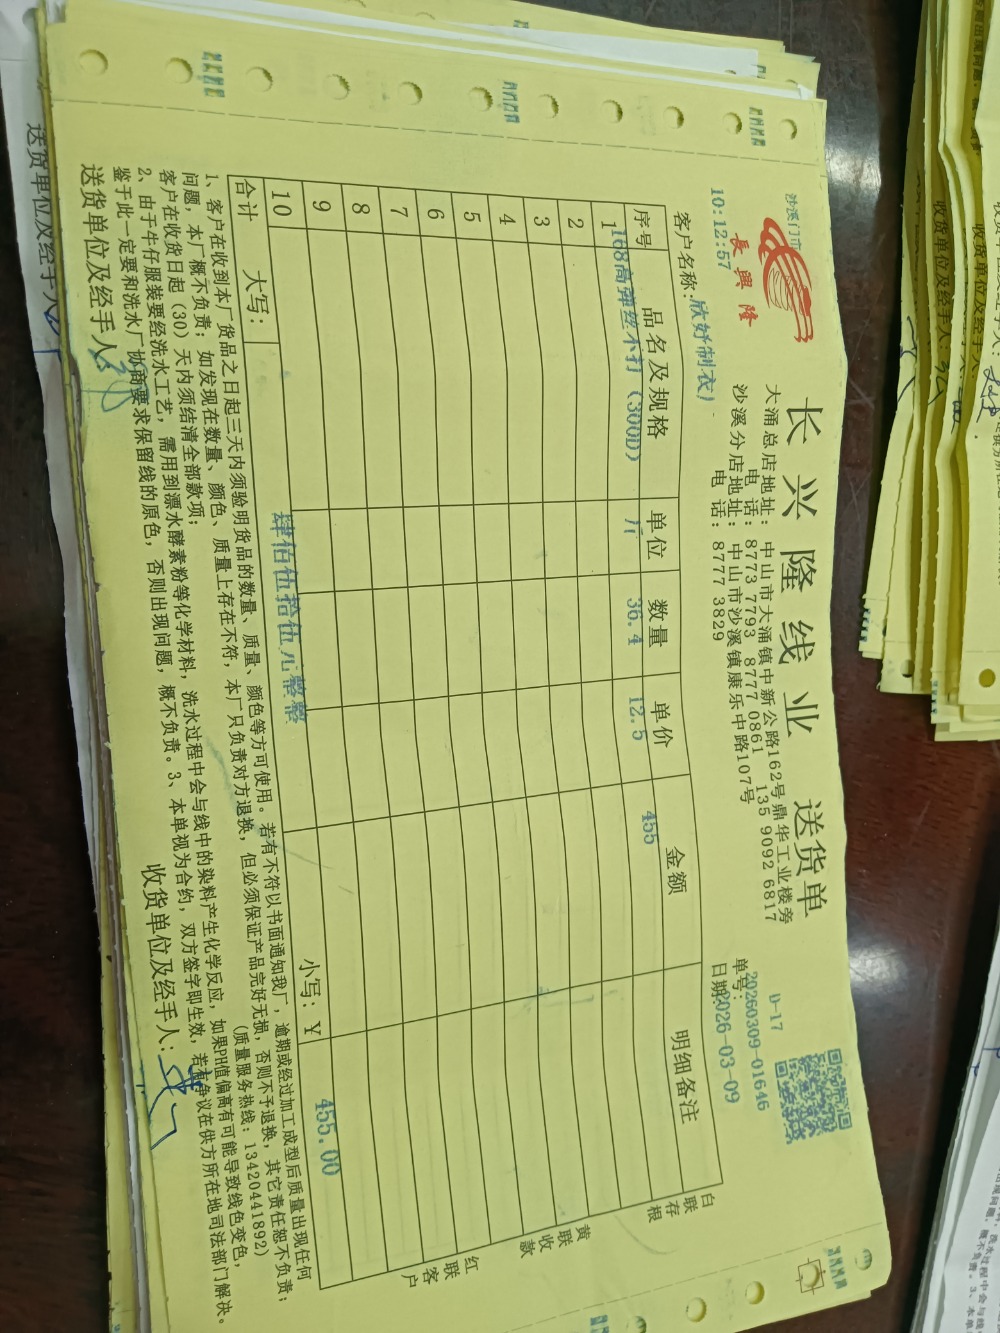 沙溪门市
長興隆
长兴隆线业 送货单
大涌总店地址: 中山市大涌镇中新公路162号鼎华工业楼旁
电 话: 8773 7793 8777 0861 135 9092 6817
沙溪分店地址: 中山市沙溪镇康乐中路107号
电 话: 8777 3829
D-17
单号: 20260309-01646
10:12:57
日期: 2026-03-09
客户名称: 欣好制衣
序号 品名及规格 单位 数量 单价 金额 明细备注
1 168高弹丝 (300D) 斤 36.4 12.5 455
2
3
4
5
6
7
8
9
10
肆佰伍拾伍元整
合计 大写: 小写: ¥ 455.00
白联存根
黄联收款
红联客户
1、客户在收到本厂货品之日起三天内须验明货品的数量、质量、颜色等方可使用。若有不符以书面通知我厂,逾期或经过加工成型后质量出现任何
问题,本厂概不负责;如发现在数量、颜色、质量上存在不符,本厂只负责对方退换,但必须保证产品完好无损,否则不予退换,其它责任恕不负责;
客户在收货日起(30)天内须结清全部款项; (质量服务热线: 13420441892)
2、由于牛仔服装要经洗水工艺,需用到漂水酵素粉等化学材料,洗水过程中会与线中的染料产生化学反应,如果PH值偏高有可能导致线色变色,
鉴于此一定要和洗水厂协商要求保留线的原色,否则出现问题,概不负责。3、本单视为合约,双方签字即生效,若有争议在供方所在地司法部门解决。
送货单位及经手人: 收货单位及经手人:
送货单位及经手人
收货单位及经手人:
收货单位及经手人: